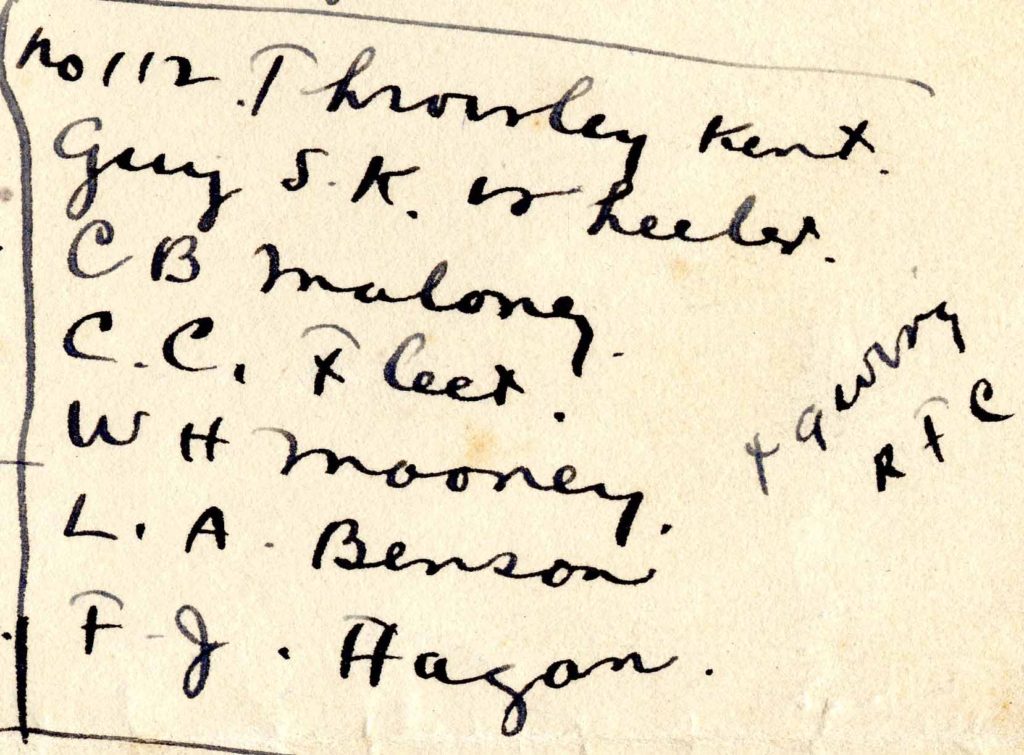 No 112. Throwley Kent.
Guy S. K. Wheeler.
C B Maloney.
C. C. Fleet.
W H Mooney.
L. A. Benson
F. J. Hagan.
RFC